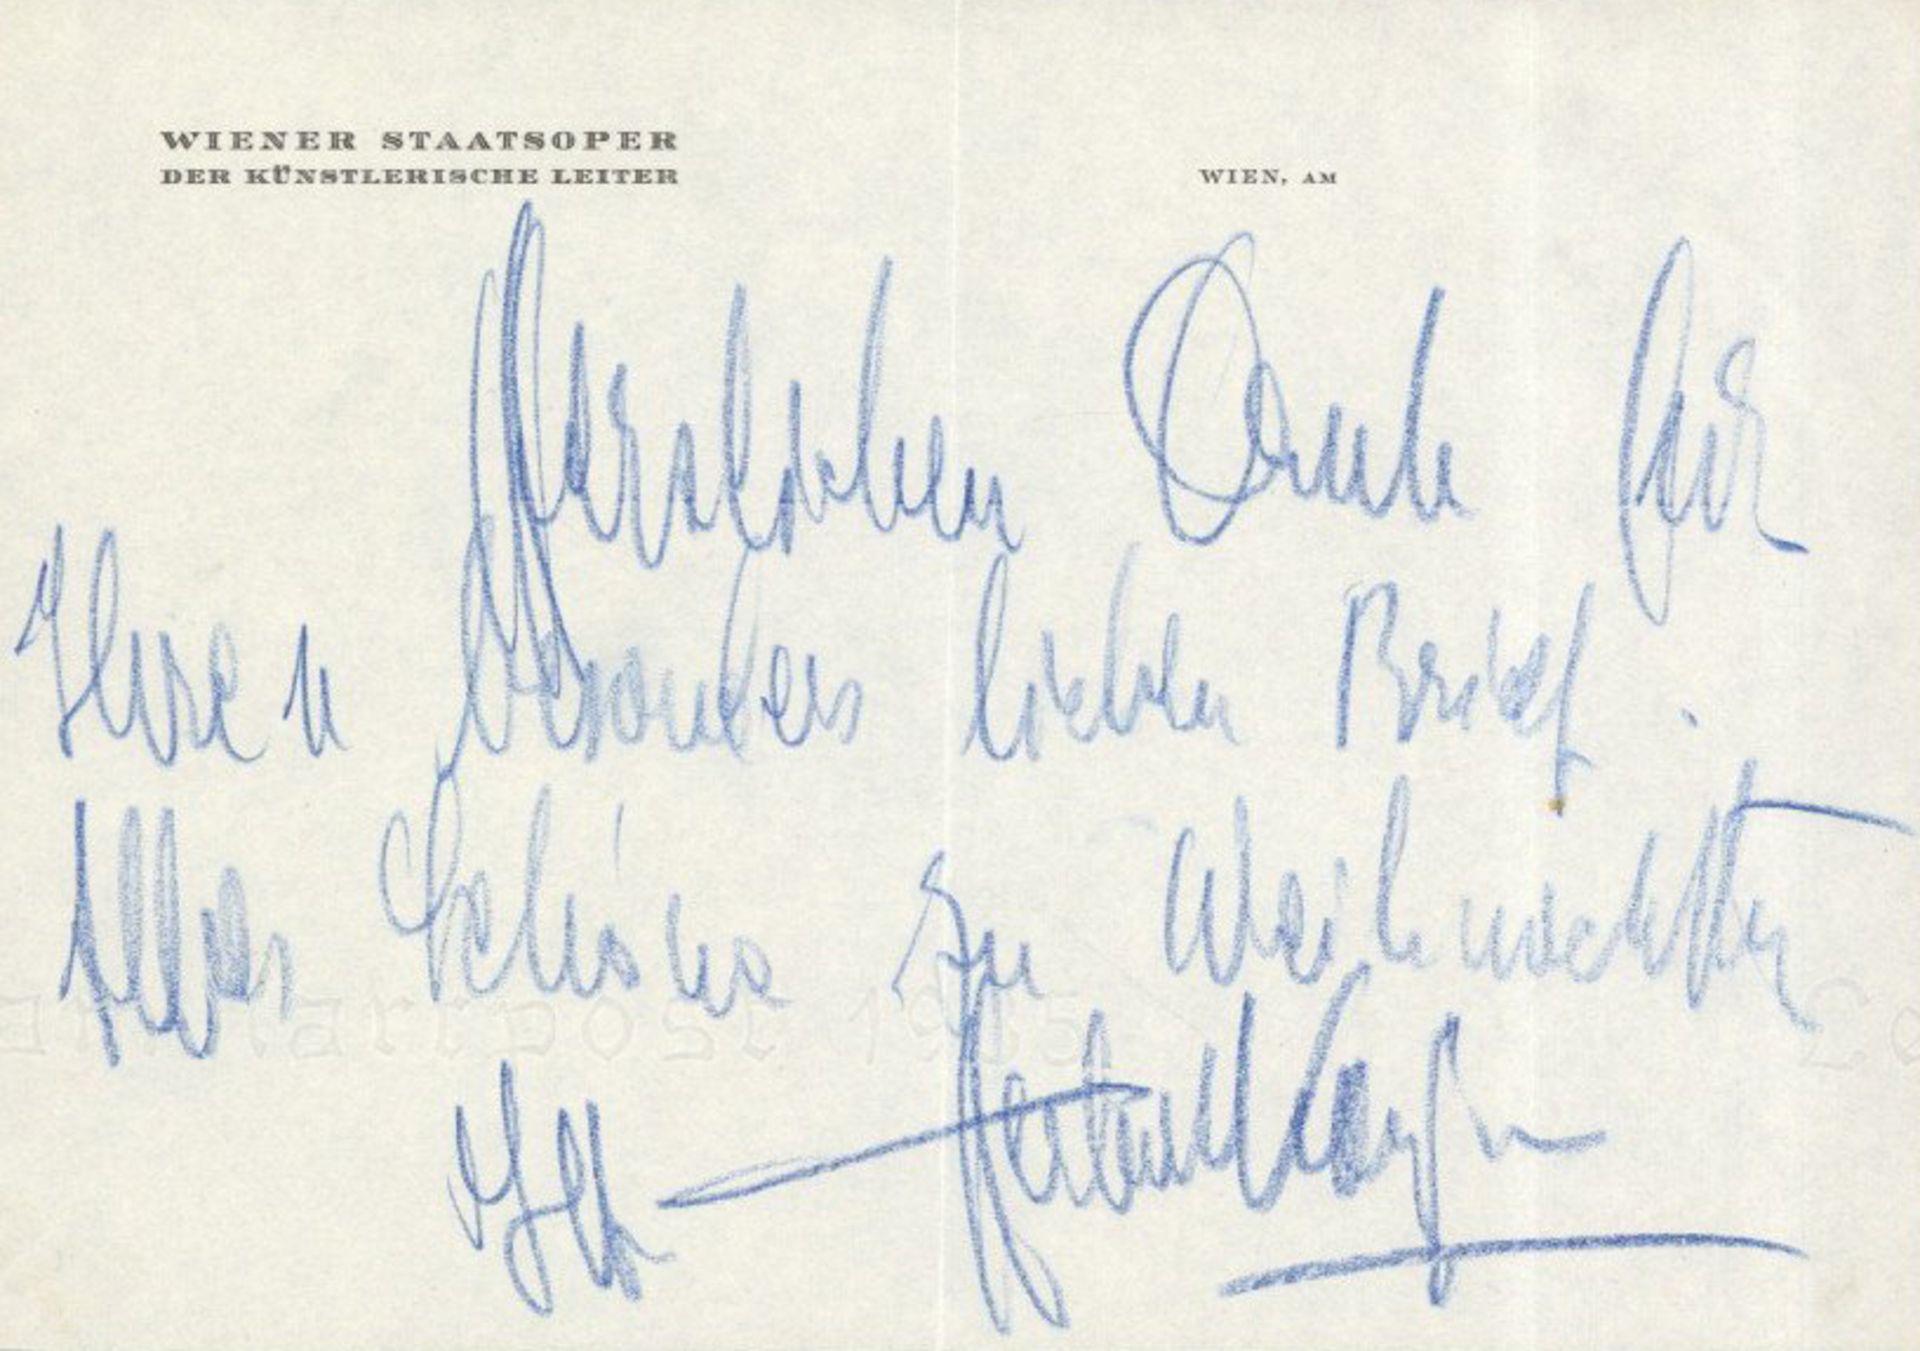 WIENER STAATSOPER
DER KÜNSTLERISCHE LEITER
WIEN, AM
Herzlichen Dank für
Ihren besonders lieben Brief.
Alles Schöne zu Weihnachten
Ihr
Herbert Karajan